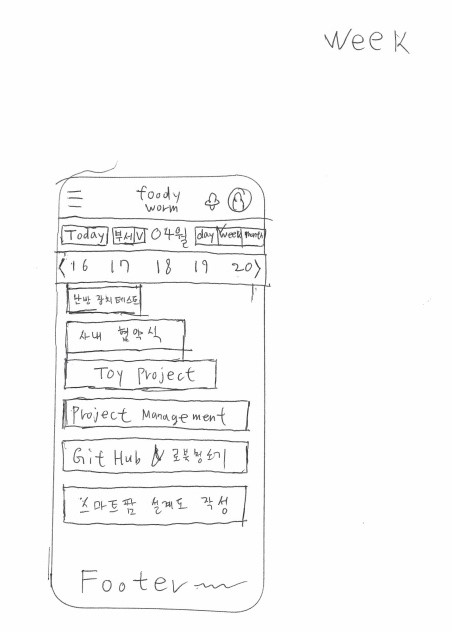 Week
foody
worm
Today 부서 V 04월 day week month
< 16 17 18 19 20 >
난방 장치 테스트
사내 협약식
Toy Project
Project Management
GitHub
스마트팜 설계도 작성
Footer